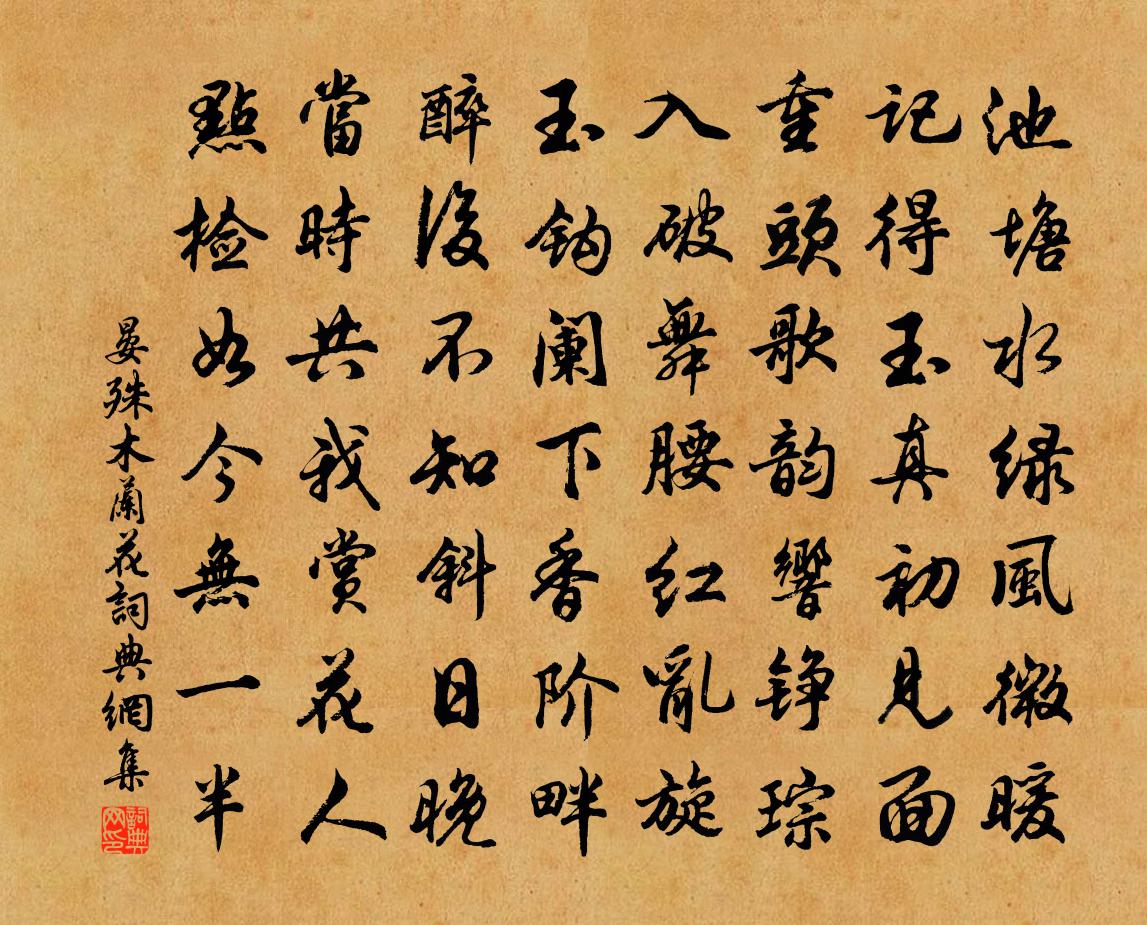 池塘水绿風微暖
記得玉真初見面
重頭歌韵響铮琮
入破舞腰红亂旋
玉钩阑下香阶畔
醉後不知斜日晚
當時共我賞花人
點检如今無一半
晏殊木蘭花詞典網集
詞典网印